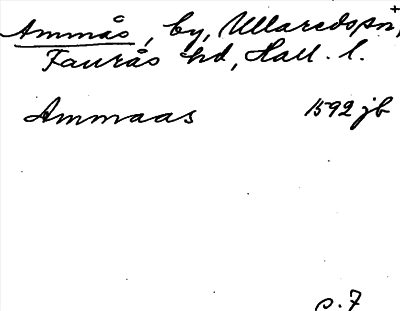 Ammås, by, Ullaredspn,+
Faurås hd, Hall. l.
Ammaas 1592 jb
s. 7